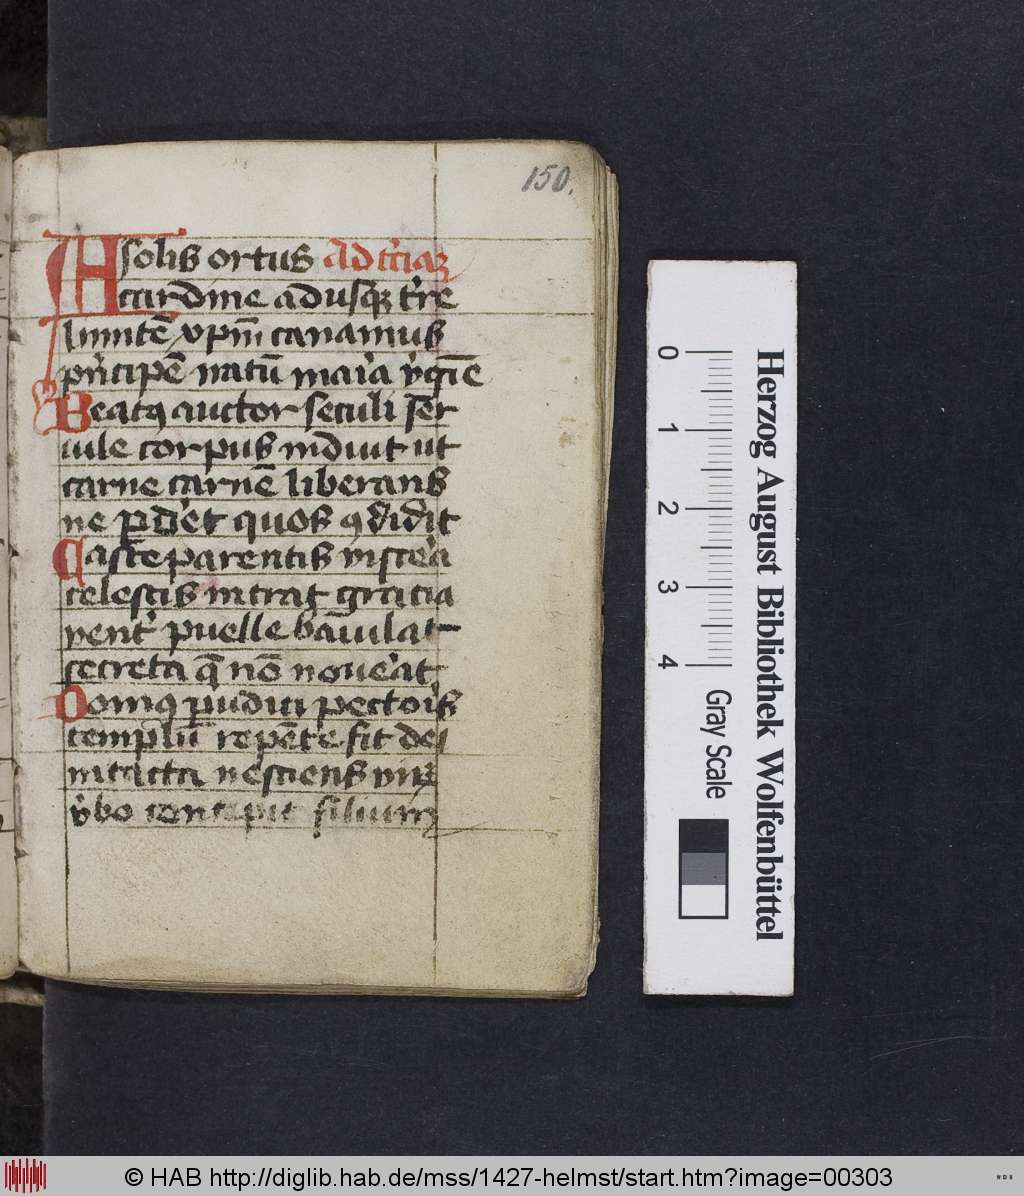 150.
A solis ortus Ad t͛ciaꝫ
cardine adusqꝫ t͛re
limitē xp̄m canamus
p͛ncipē natū maͥa v͛gīe
Beatꝰ auctor seculi ser
uile corpus induit ut
carne carnē liberans
ne ꝑd͛et quos ꝯdidit
Caste parentis viscͤa
celestis intrat gracia
vent͛ puelle baiulat
secreta q̄ nō noue͛at
Domꝰ pudici pecto͛is
templū repēte fit dei
intacta nesciens viꝝ
v͛bo concepit filium
Herzog August Bibliothek Wolfenbüttel
0 1 2 3 4
Gray Scale
© HAB http://diglib.hab.de/mss/1427-helmst/start.htm?image=00303